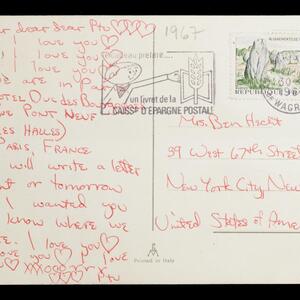 dear dear Ptu
I love you
I love you
I love you
are in Pa
HOTEL DUC DES BOURGOGNE
PONT NEUF
(LES HALLES)
PARIS, FRANCE
will write a letter
or tomorrow
I wanted you
know where we
are. I love you
love you I love
you XXXOOO
1967
un livret de la
CAISSE D'EPARGNE POSTALE
ALIGNEMENTS DE
REPUBLIQUE
WAGR
Mrs. Ben Hecht
39 West 67th Street
New York City, New
United States of Amer
Printed in Italy